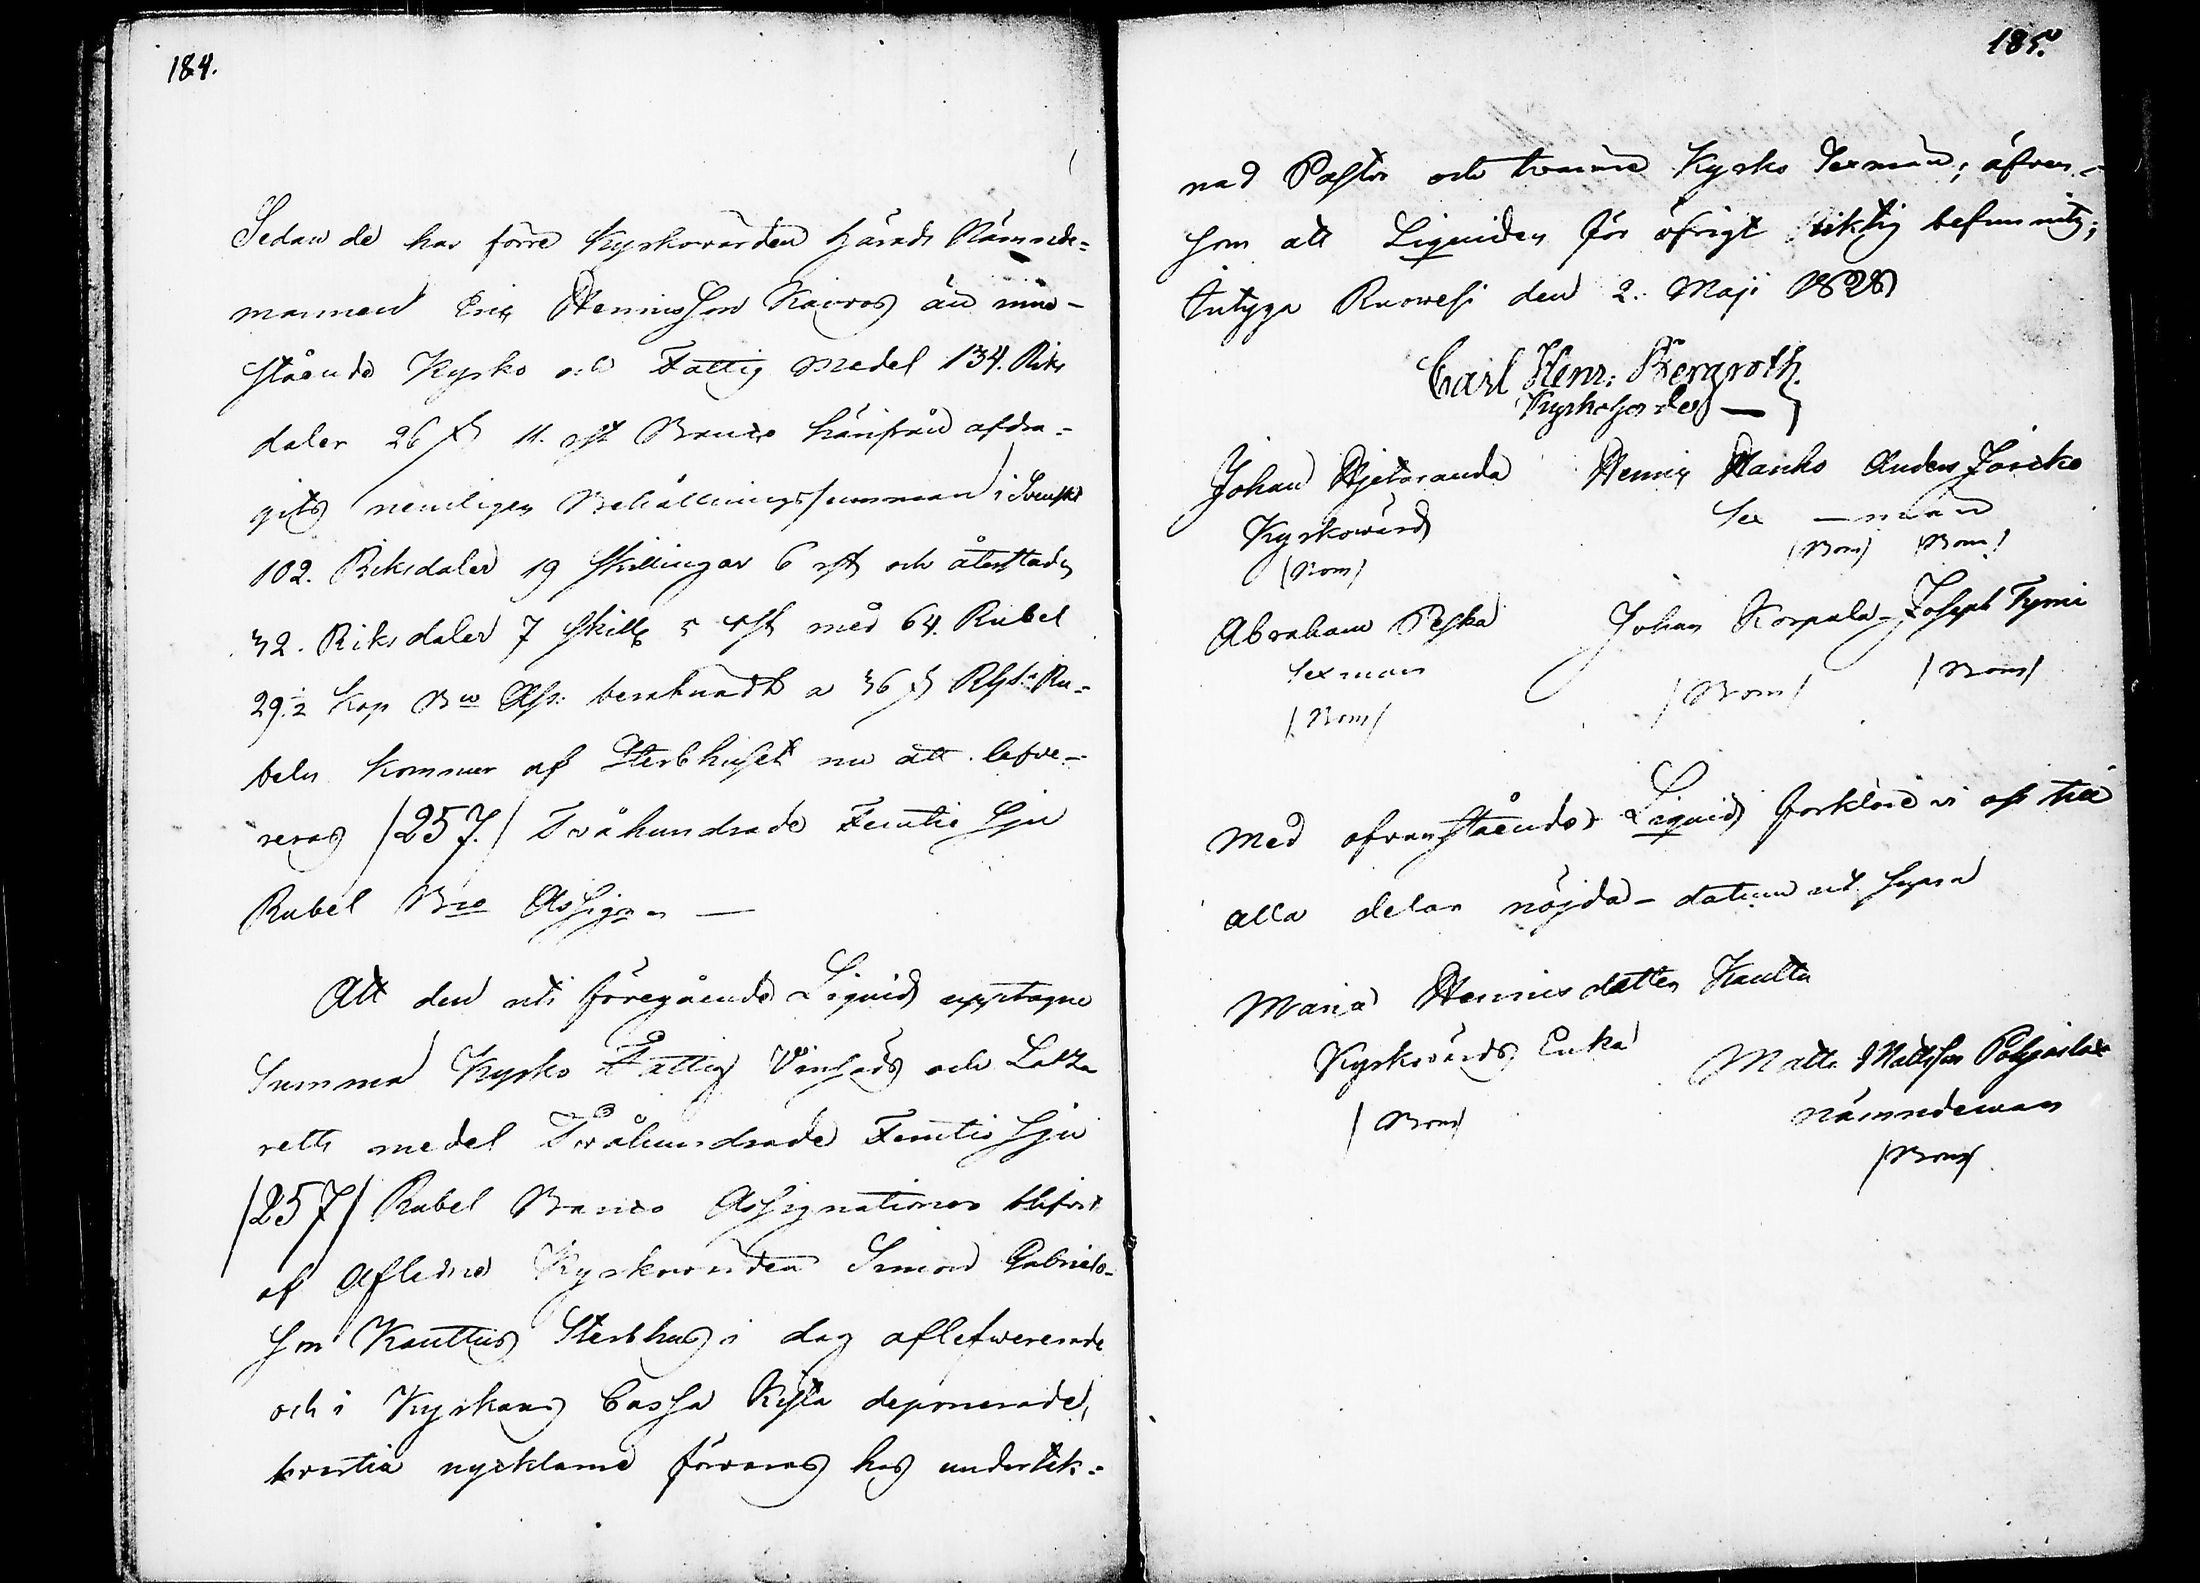 184.
Sedan de hos förre Kyrkovärden Härads Nämnde=
mannen Eric Hennissson Kaivos än inne-
stående Kyrko och Fattig Medel 134. Riks
daler 26 ß 11. rst Banco härifrån afdra=
gits nemligen Behållningssumman i Svenskt
102. Riksdaler 19 Skillingar 6 rst och återstoden
32. Riksdaler 7 Skill 5 rst med 64. Rubel
29. 2 Kop Bco Ass: beräknadt a 36 ß Rgs Ru=
beln kommer af Sterbhuset nu att lefve-
reras /257./ Tvåhundrade Femtio Sju
Rubel Bco Assign. —
Att den uti föregående Liquid upptagne
Summa Kyrko Fattig Vinsäds och Laza
retts medel Tvåhundrade Femtio Sju
/257/ Rubel Banco Assignationer blifvit
af Aflidne Kyrkovärden Simon Gabriels-
son Kauttus Sterbhus i dag aflefwererade
och i Kyrkans Cassa Kista deponerade,
hvartill nycklarne förvaras hos undertek=
185.
nad Pastor och tvänne Kyrko Sexmän; äfven-
som att Liquiden för öfrigt riktig befunnits;
Intyga Ruowesi den 2. Maji 1828
Carl Henr: Bergroth.
Kyrkoherde
Johan Hjetaranda Henric Hanho Anders Jäecko
Kyrkovärd Sex — män
(Bom) (Bom) (Bom)
Abraham Peska Johan Korpula - Joseph Tyrni
Sexman
/Bom/ /Bom/ /Bom/
Med ofvanstående Liquid förklare vi oss till
alla delar nöjda - datum ut supra
Maria Hennisdotter Kautta
Kyrkovärds Enka Matts Mattsson Pohjaslax
/Bom/ nämndeman
/Bom/